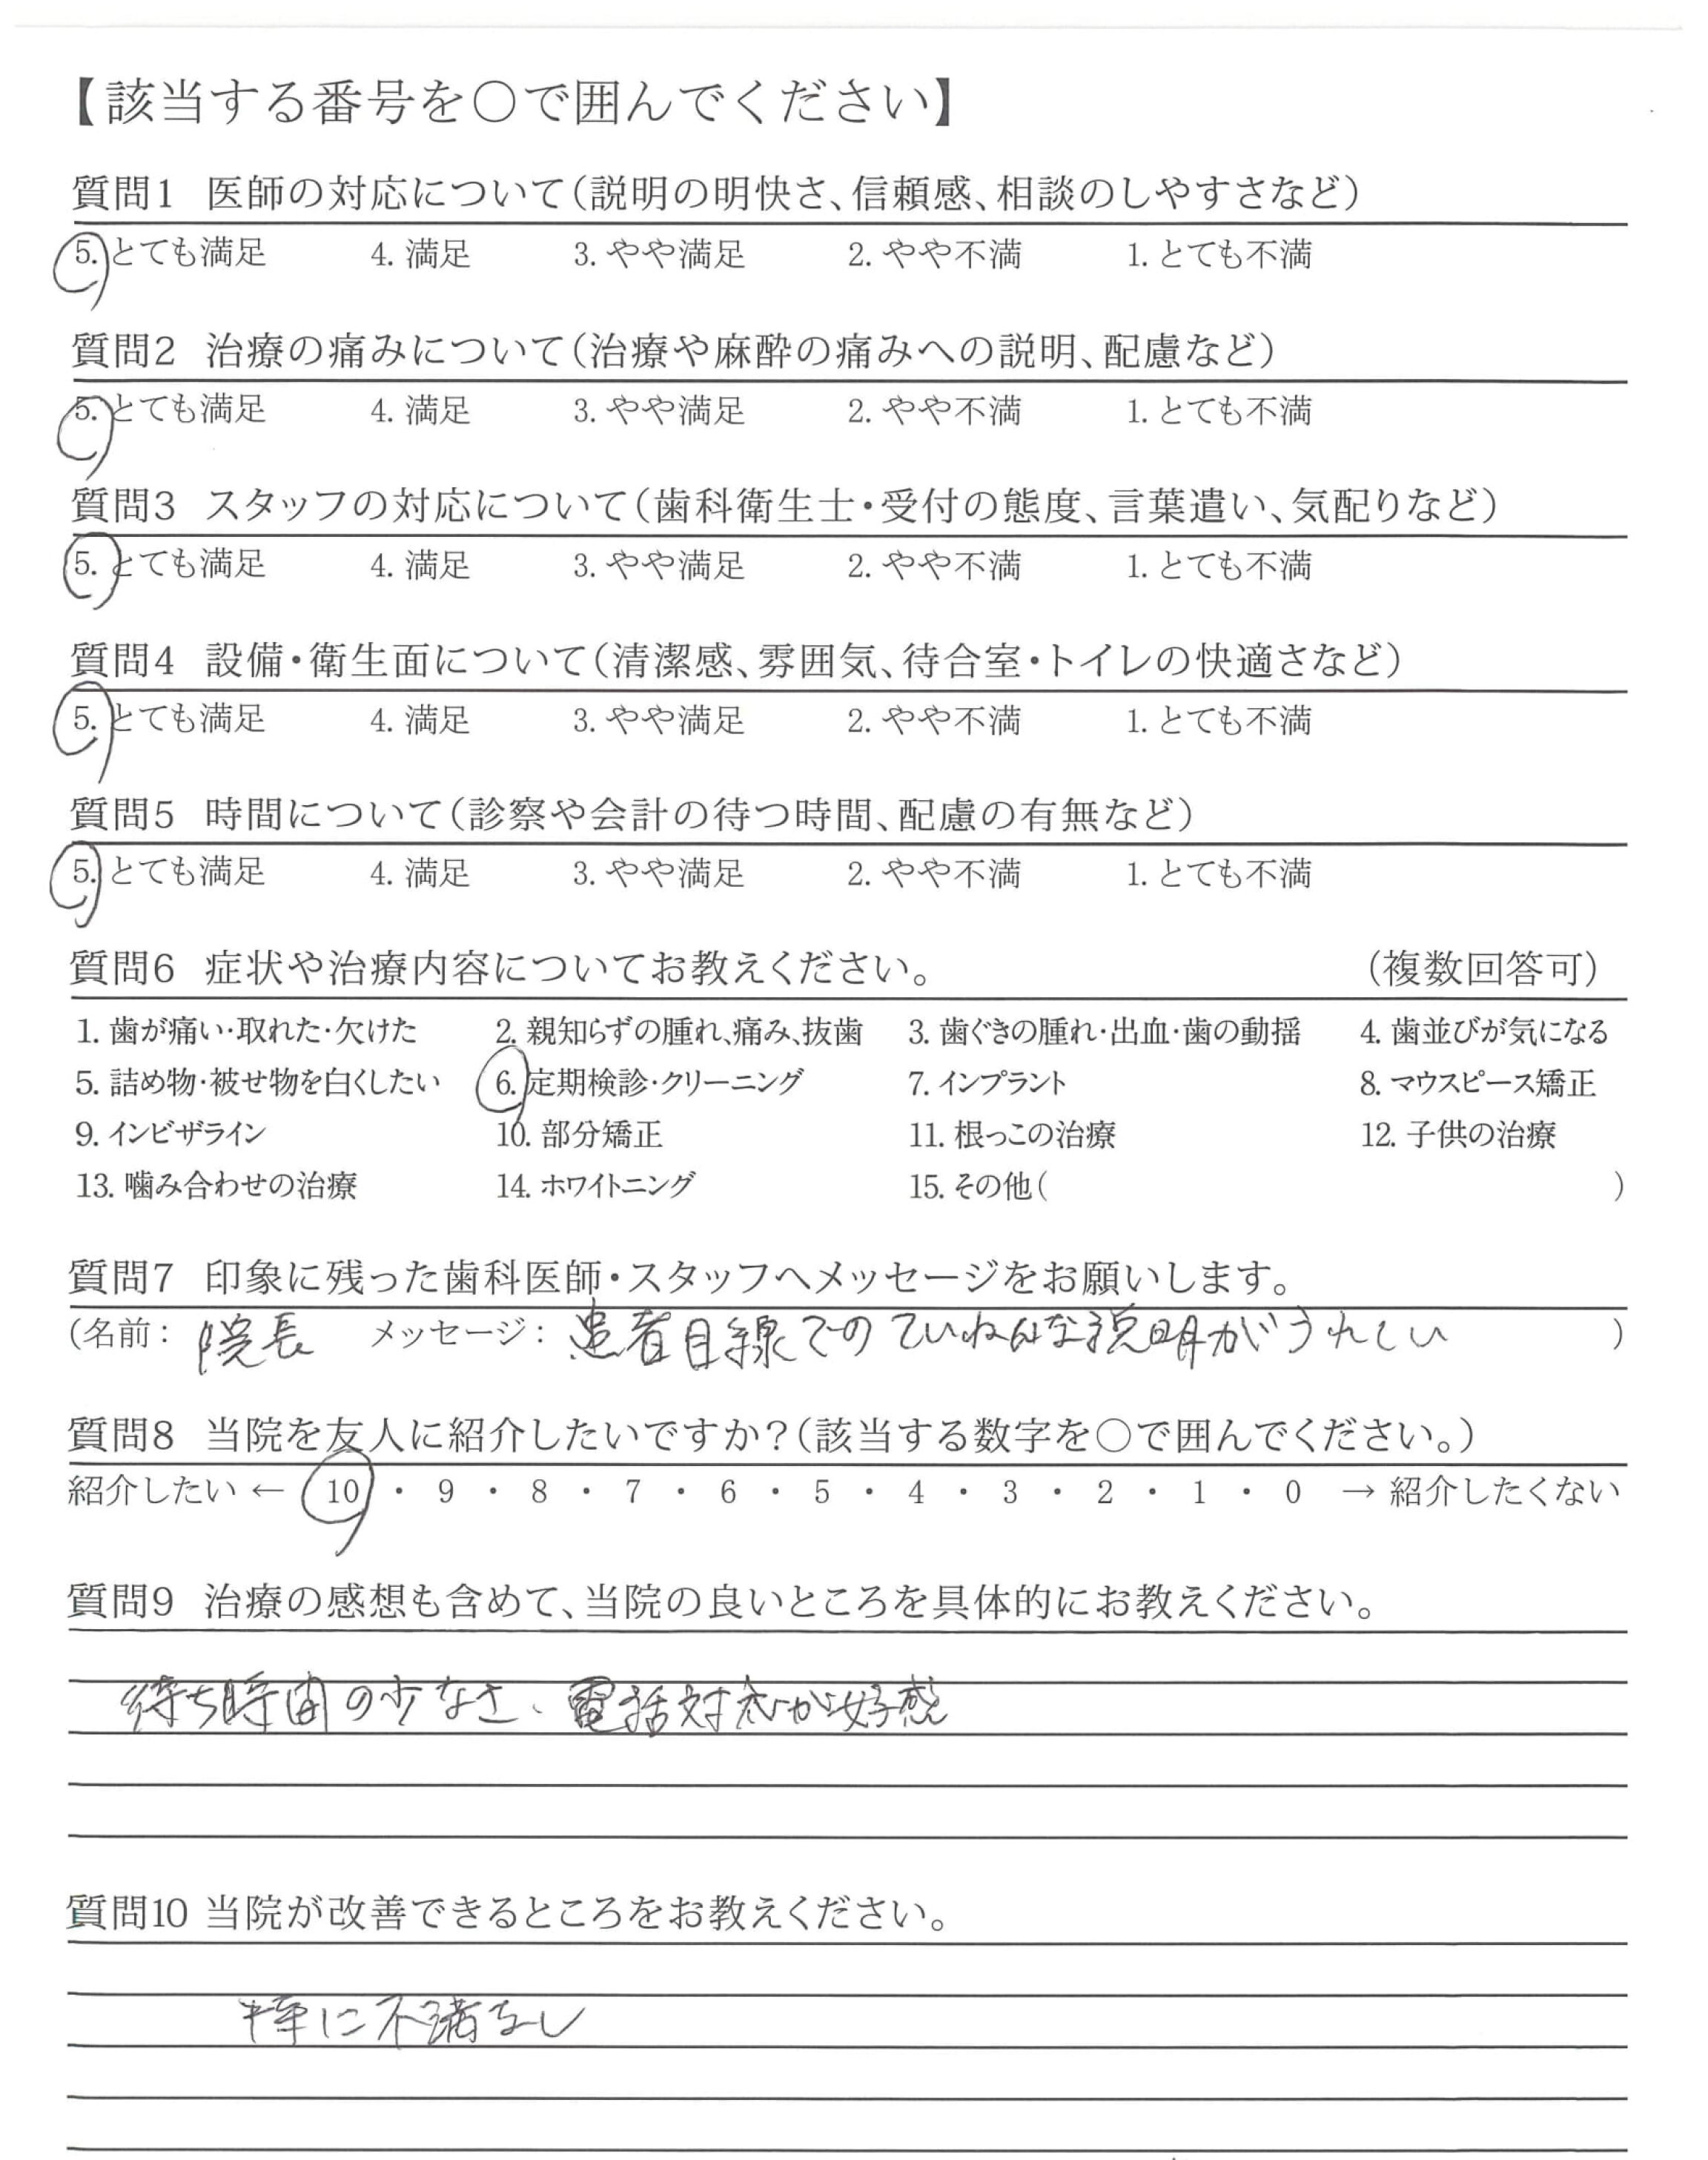 【該当する番号を○で囲んでください】
質問1 医師の対応について(説明の明快さ、信頼感、相談のしやすさなど)
5. とても満足 4. 満足 3. やや満足 2. やや不満 1. とても不満
質問2 治療の痛みについて(治療や麻酔の痛みへの説明、配慮など)
5. とても満足 4. 満足 3. やや満足 2. やや不満 1. とても不満
質問3 スタッフの対応について(歯科衛生士・受付の態度、言葉遣い、気配りなど)
5. とても満足 4. 満足 3. やや満足 2. やや不満 1. とても不満
質問4 設備・衛生面について(清潔感、雰囲気、待合室・トイレの快適さなど)
5. とても満足 4. 満足 3. やや満足 2. やや不満 1. とても不満
質問5 時間について(診察や会計の待つ時間、配慮の有無など)
5. とても満足 4. 満足 3. やや満足 2. やや不満 1. とても不満
質問6 症状や治療内容についてお教えください。 (複数回答可)
1. 歯が痛い・取れた・欠けた 2. 親知らずの腫れ、痛み、抜歯 3. 歯ぐきの腫れ・出血・歯の動揺 4. 歯並びが気になる
5. 詰め物・被せ物を白くしたい 6. 定期検診・クリーニング 7. インプラント 8. マウスピース矯正
9. インビザライン 10. 部分矯正 11. 根っこの治療 12. 子供の治療
13. 噛み合わせの治療 14. ホワイトニング 15. その他( )
質問7 印象に残った歯科医師・スタッフへメッセージをお願いします。
(名前: 院長 メッセージ: 患者目線でのていねんな説明がうれしい )
質問8 当院を友人に紹介したいですか?(該当する数字を○で囲んでください。)
紹介したい ← 10 ・ 9 ・ 8 ・ 7 ・ 6 ・ 5 ・ 4 ・ 3 ・ 2 ・ 1 ・ 0 → 紹介したくない
質問9 治療の感想も含めて、当院の良いところを具体的にお教えください。
待ち時間の少なさ、電話対応が好感
質問10 当院が改善できるところをお教えください。
特に不満なし